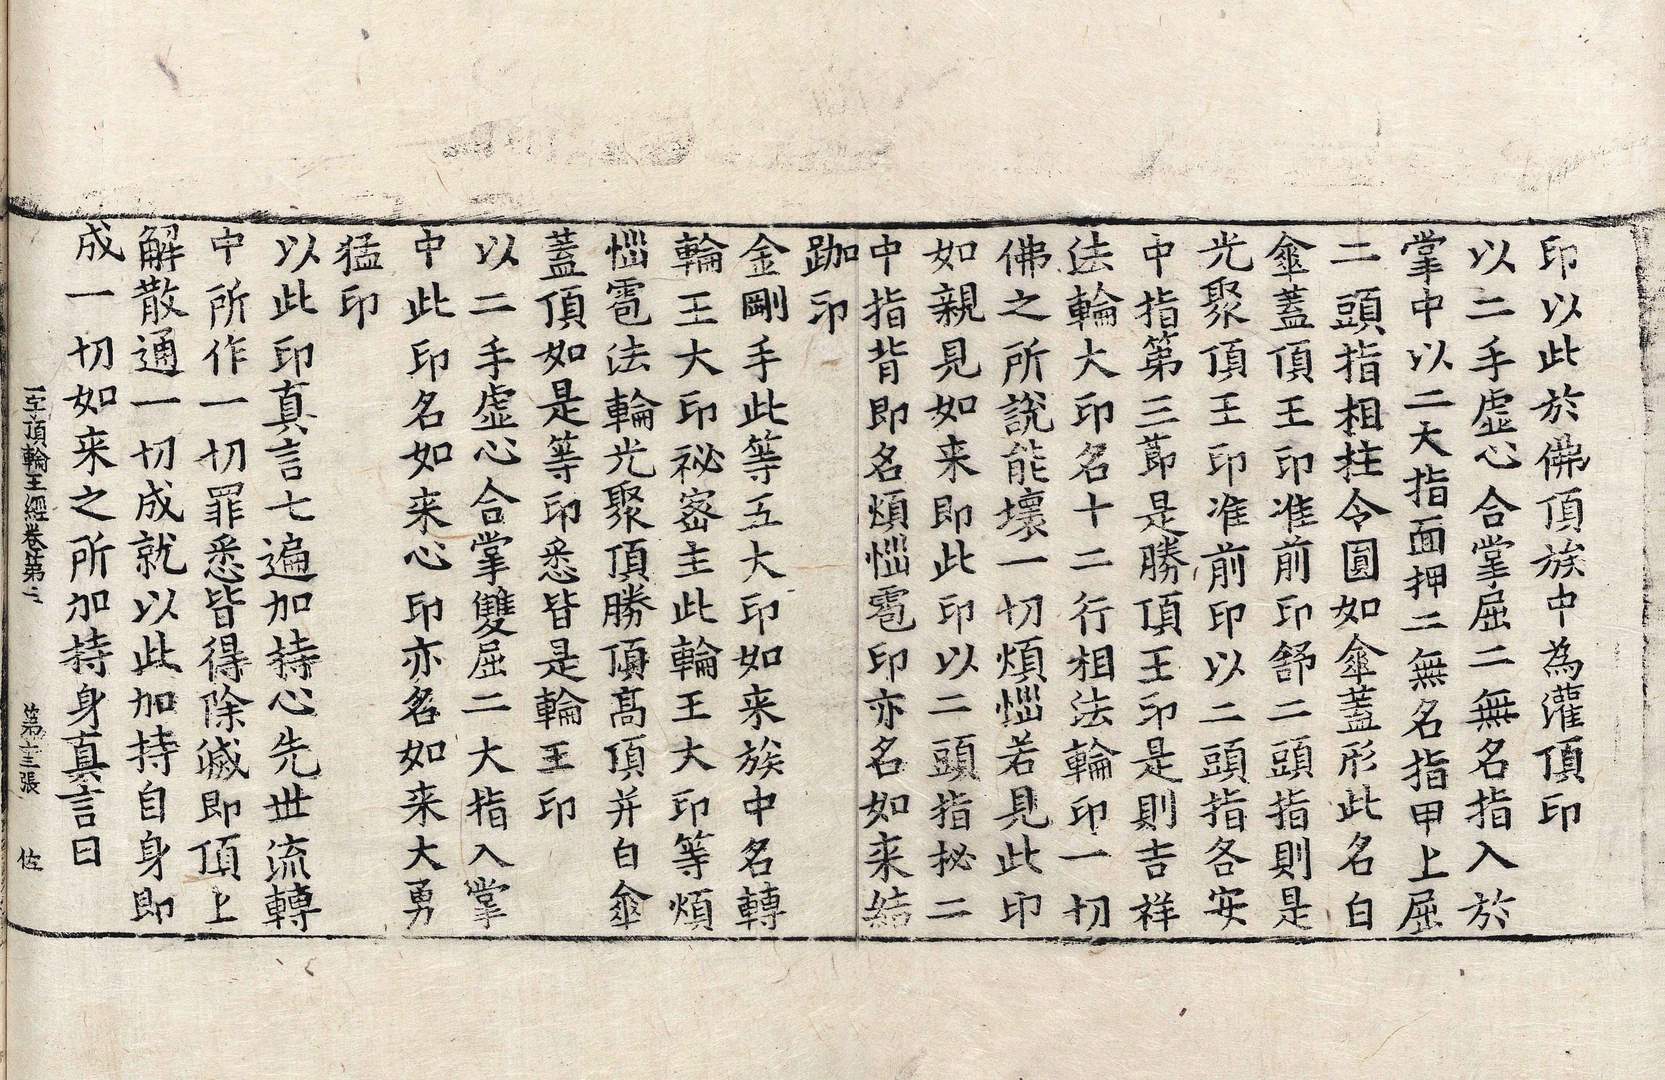 印以此於佛頂族中為灌頂印
以二手虛心合掌屈二無名指入於
掌中以二大指面押二無名指甲上屈
二頭指相拄令圓如傘蓋形此名白
傘蓋頂王印准前印舒二頭指則是
光聚頂王印准前印以二頭指各安
中指第三節是勝頂王印是則吉祥
法輪大印名十二行相法輪印一切
佛之所說能壞一切煩惱若見此印
如親見如来即此印以二頭指拯二
中指背即名煩惱雹印亦名如来結
跏印
金剛手此等五大印如来族中名轉
輪王大印祕密主此輪王大印等煩
惱雹法輪光聚頂勝頂高頂并白傘
蓋頂如是等印悉皆是輪王印
以二手虛心合掌雙屈二大指入掌
中此印名如来心印亦名如来大勇
猛印
以此印真言七遍加持心先世流轉
中所作一切罪悉皆得除滅即頂上
解散通一切成就以此加持自身即
成一切如来之所加持身真言曰
一字頂輪王經卷第二 第十三張 佐